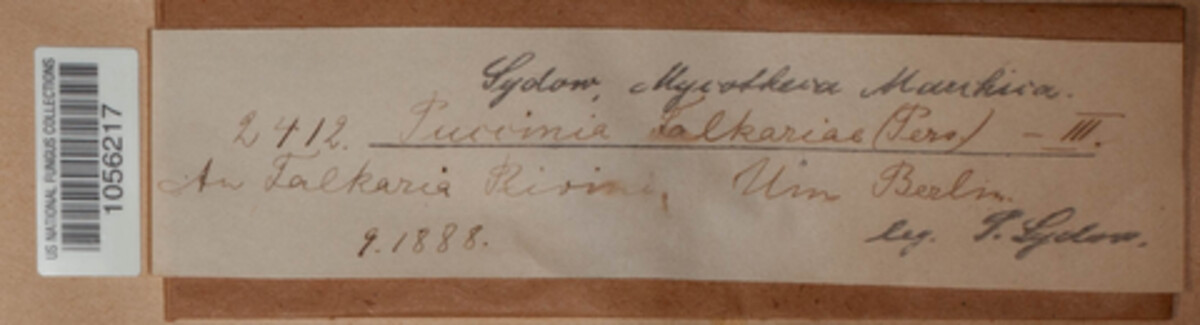 US NATIONAL FUNGUS COLLECTIONS
1056217
Sydow, Mycotheca Marchica.
2412. Puccinia Falkariae (Pers) - III.
An Falkaria Rivini, Um Berlin.
9.1888.
leg. P. Sydow.